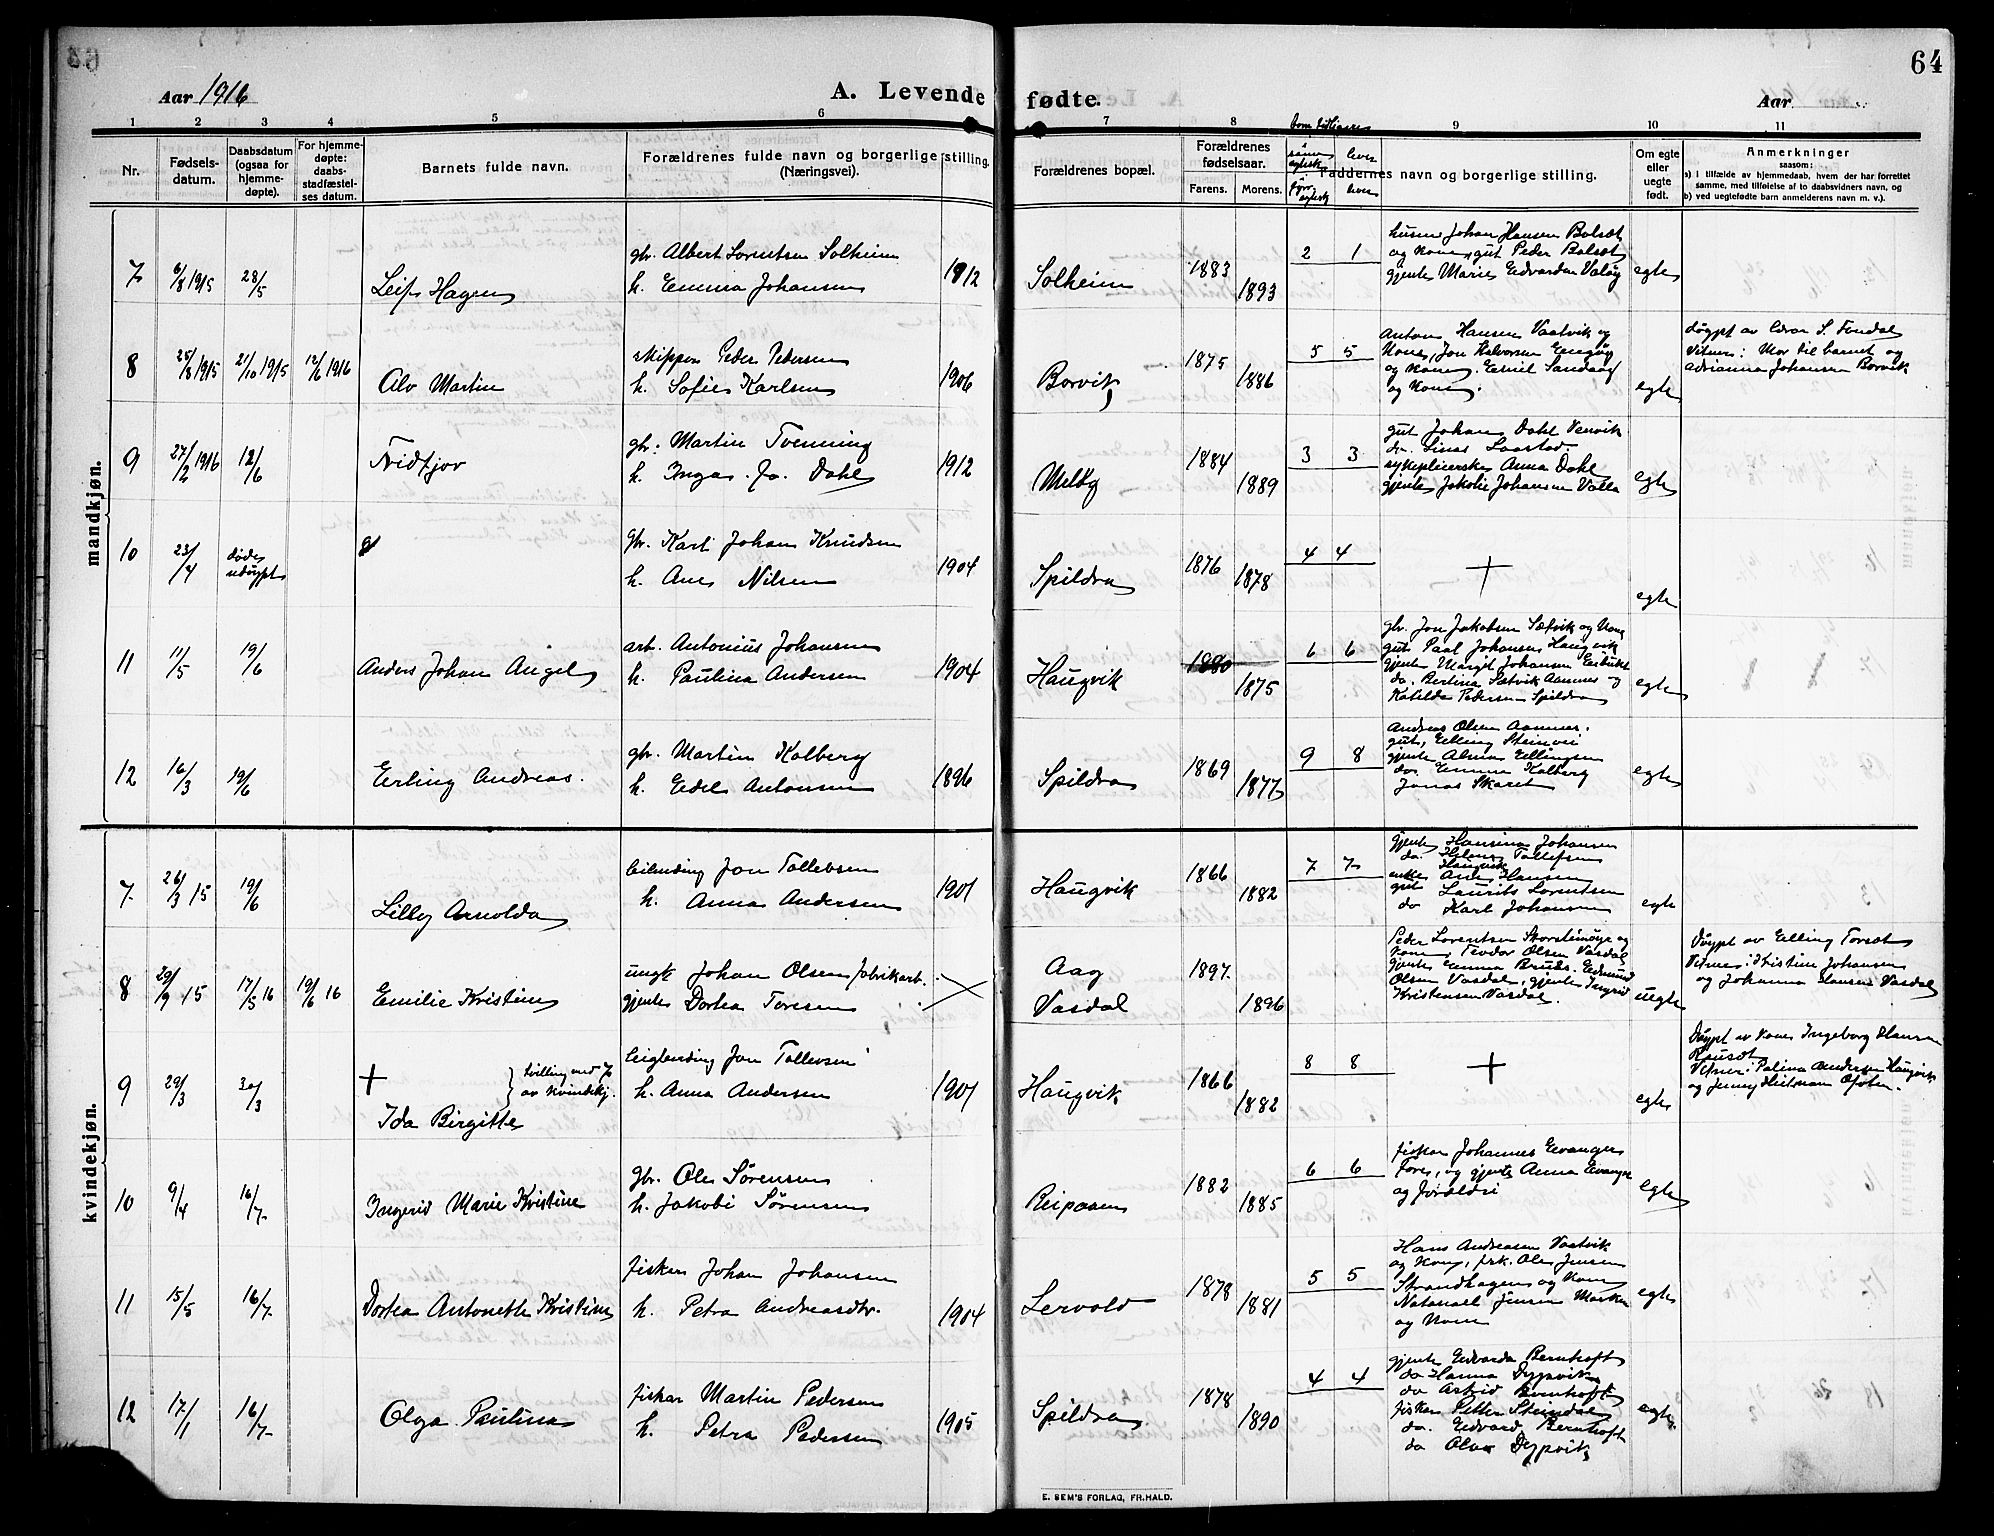 63
64
Aar 1916
A. Levende
fødte.
Aar
1 2 3 4 5 6
7 8 9 10 11
Nr.
Fødsels-
datum.
Daabsdatum
(ogsaa for
hjemme-
døpte).
For hjemme-
døpte:
daabs-
stadfæstel-
ses datum.
Barnets fulde navn.
Forældrenes fulde navn og borgerlige stilling.
(Næringsvei).
Forældrenes bopæl.
Forældrenes
fødselsaar.
Farens. Morens.
Faddernes navn og borgerlige stilling.
Om egte
eller
uegte
født.
Anmerkninger
saasom:
a) i tilfælde av hjemmedaab, hvem der har forrettet
samme, med tilføielse af to daabsvidners navn, og
b) ved uegtefødte barn anmelderens navn m. v.).
mandkjøn.
7 6/8 1915 28/5 Leif Hagen
gbr. Albert Lorentsen Solheim
h. Emma Johansen
1912 Solheim 1883 1893 2 1
husm. Johan Hansen Balsæt
og kone, gut Peder Balsæt
gjente Marie Edvardsen Valøy
egte
8 25/8 1915 21/10 1915 12/6 1916 Alv Martin
skipper Peder Pedersen
h. Sofie Karlsen
1906 Borvik 1875 1886 5 5
Anton Hansen Vaatvik og
kone, Jon Halvorsen Engøy
og kone. Emil Sandaag
og kone.
egte
døypt av S. Fondal
Vitner: Mor til barnet og
Adrianna Johansen Borvik
9 27/2 1916 12/6 Fridtjov
gbr. Martin Tvenning
h. Inga Dahl
1912 Meløy 1884 1889 3 3
gut Johan Dahl Venvik
do. Linas
sykepleierske Anna Dahl
gjente Jakobie Johansen Valla
egte
10 23/4 døde
udøypt
gbr. Karl Johan Knudsen
h. Ane Nilsen
1904 Spildra 1876 1878 4 4
+
egte
11 11/5 19/6 Anders Johan Angel
arb. Antonius Johansen
h. Paulina Andersen
1904 Haugvik 1880 1875 6 6
gbr. Jon Jakobsen Sætvik og kone
gut Paal Johansen Haugvik
gjente Margit Johansen
do. Bertina Sætvik Aamnes og
Katilde Pedersen Spildra
egte
12 16/3 19/6 Erling Andreas.
gbr. Martin Kolberg
h. Edel Antonsen
1896 Spildra 1869 1877 9 8
Andreas Olsen Aamnes.
gut, Elling Steinvei
gjente Alma Ellingsen
do Emma Kolberg
Jonas Skaret
egte
kvindekjøn.
7 26/3 15 19/6 Lilly Arnolda
Jon Tollevsen
h. Anna Andersen
1901 Haugvik 1866 1882 7 7
gjente Hansina Johansen
do. Helena Tollefsen
Haugvik
enke Ane Hansen
gut Laurits Lorentsen
do Karl Johansen
egte
8 29/9 15 17/5 16 19/6 16 Emilie Kristine
ungk Johan Olsen fabrikarb.
gjente Dortea Toresen
Aag
Vasdal
1897. 1896
Peder Lorentsen Skorsteinøye og
kone, Teodor Olsen Vasdal
gjente Emma Bruds. Edmund
Olsen Vasdal, gjente Ingrid
Kristensen Vasdal.
uegte
Døypt av Elling Torset
Vitner: Kristine Johansen
og Johanna Hansen Vasdal
9 29/3 30/3 + Ida Birgitte
tvilling med 7
av kvindekj.
leiglending Jon Tollevsen
h. Anna Andersen
1901 Haugvik 1866 1882 8 8
+
egte
Døypt av kone Ingeborg Hansen
Vitner: Palina Andersen Haugvik
og Jenny Heitman Ofoten.
10 9/4 16/7 Ingerid Marie Kristine
gbr. Ole Sørensen
h. Jakobi Sørensen
Reipaaen 1882 1885 6 6
fisker Johannes Evanger
Fore, og gjente Anna Evanger
og forældri
egte
11 15/5 16/7 Dortea Antonette Kristine
fisker Johan Johansen
h. Petra Andreasdtr.
1904 Lervold 1878 1881 5 5
Hans Andreasen Vaatvik
og kone, frk. Ole Jensen
Strandhagen og kone
Natanael Jensen Marken
og kone
egte
12 17/1 16/7 Olga Paulina
fisker Martin Pedersen
h. Petra Pedersen
1905 Spildra 1878 1890 4 4
gjente Edvarda Bernhoft
do Hanna Dypvik
do Astrid Bernhoft
fisker Petter Steindal
do. Edvard Bernhoft
do Olav Dypvik
egte
E. SEM'S FORLAG, FR.HALD.